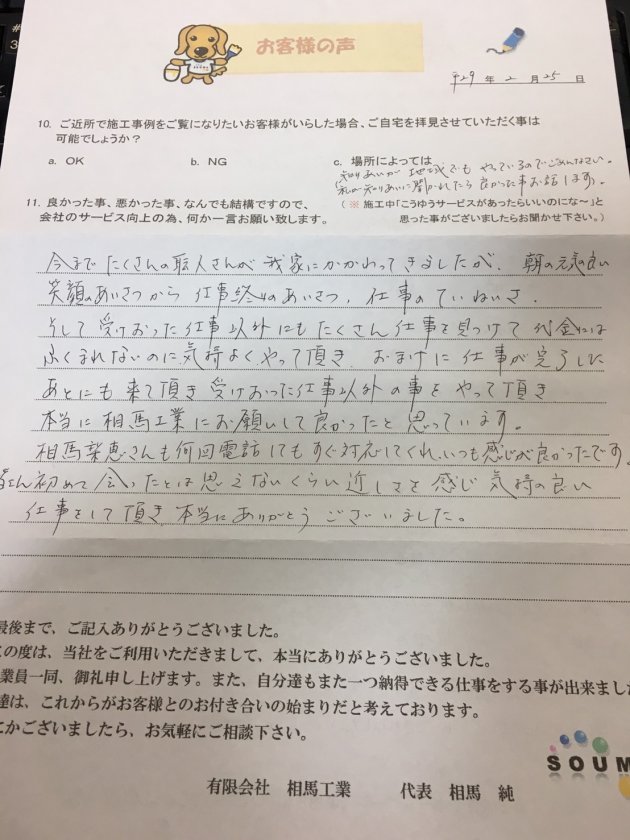 お客様の声
平29 年 2 月 25 日
10. ご近所で施工事例をご覧になりたいお客様がいらした場合、ご自宅を拝見させていただく事は
可能でしょうか？
a. OK b. NG c. 場所によっては
知りあいが 地域でも やっているのでごめんなさい。
私が知りあいに聞かれたら良かった事お話します。
11. 良かった事、悪かった事、なんでも結構ですので、
会社のサービス向上の為、何か一言お願い致します。
（ ※ 施工中「こうゆうサービスがあったらいいのにな～」と
思った事がございましたらお聞かせ下さい。）
今まで たくさんの職人さんが 我家にかかわってきましたが、朝の元気の良い
笑顔のあいさつから 仕事終りのあいさつ、仕事のていねいさ、
そして 受けおった仕事以外にも たくさん 仕事を見つけて 代金には
ふくまれないのに気持よくやって頂き、おまけに 仕事が完了した
あとにも 来て頂き 受けおった仕事以外の事を やって頂き
本当に 相馬工業にお願いして良かったと 思っています。
相馬梨恵さんも何回電話してもすぐ対応してくれ、いつも 感じが良かったです。
初めて 会ったとは 思えないくらい 近しさを 感じ 気持の良い
仕事をして頂き 本当にありがとう ございました。
最後まで、ご記入ありがとうございました。
の度は、当社をご利用いただきまして、本当にありがとうございました。
業員一同、御礼申し上げます。また、自分達もまた一つ納得できる仕事をする事が出来ました
達は、これからがお客様とのお付き合いの始まりだと考えております。
かございましたら、お気軽にご相談下さい。
SOUM
有限会社 相馬工業 代表 相馬 純